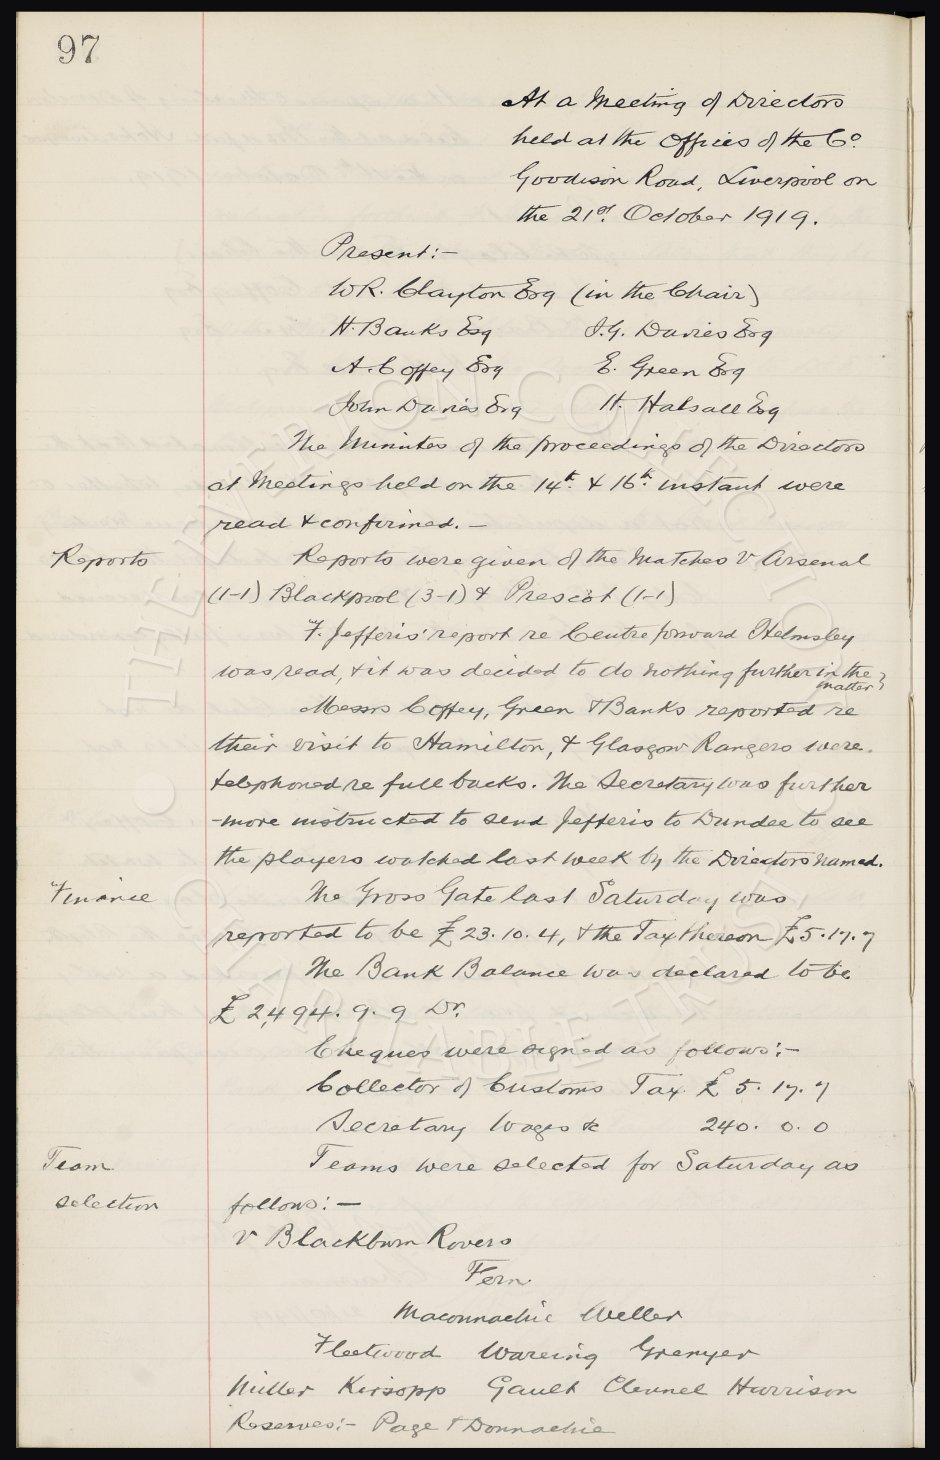 97
At a Meeting of Directors
held at the Offices of the Co.
Goodison Road, Liverpool on
the 21st. October 1919.
Present:-
W.R. Clayton Esq (in the Chair)
H. Banks Esq J.G. Davies Esq
A. Coffey Esq E. Green Esq
John Davies Esq H. Halsall Esq
The Minutes of the proceedings of the Directors
at Meetings held on the 14th. & 16th. instant were
read & confirmed. -
Reports Reports were given of the Matches v Arsenal
(1-1) Blackpool (3-1) & Prescot (1-1)
F. Jefferis' report re Centre forward Helmsley
was read, & it was decided to do nothing further in the
matter
Messrs Coffey, Green & Banks reported re
their visit to Hamilton, & Glasgow Rangers were
telephoned re full backs. The Secretary was further
-more instructed to send Jefferis to Dundee to see
the players watched last week by the Directors named.
Finance The Gross Gate last Saturday was
reported to be £23.10.4, & the Tax thereon £5.17.7
The Bank Balance was declared to be
£2,494. 9. 9 Dr.
Cheques were signed as follows:-
Collector of Customs Tax £5. 17. 7
Secretary Wages &c 240. 0. 0
Team Teams were selected for Saturday as
selection follows:-
v Blackburn Rovers
Fern
Maconnachie Weller
Fleetwood Wareing Grenyer
Miller Kirsopp Gault Clennel Harrison
Reserves:- Page & Donnachie